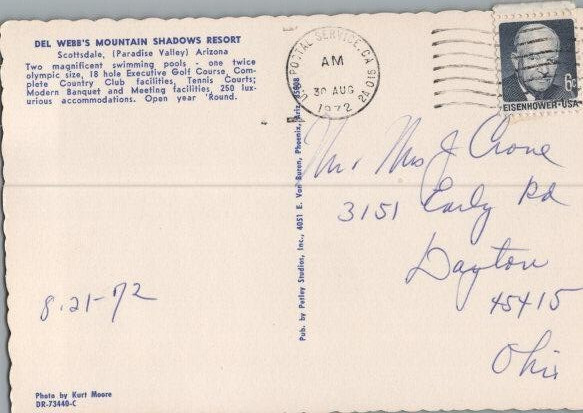 DEL WEBB'S MOUNTAIN SHADOWS RESORT
Scottsdale, (Paradise Valley) Arizona
Two magnificent swimming pools - one twice
olympic size, 18 hole Executive Golf Course, Com-
plete Country Club facilities, Tennis Courts;
Modern Banquet and Meeting facilities, 250 lux-
urious accommodations. Open year 'Round.
8-21-72
Photo by Kurt Moore
DR-73440-C
Pub. by Petley Studios, Inc., 4051 E. Van Buren, Phoenix, Ariz. 85008
POSTAL SERVICE, CA
AM
30 AUG
1972
6¢
EISENHOWER·USA
Mr Mrs J Crone
3151 Early Rd
Dayton
45415
Ohio